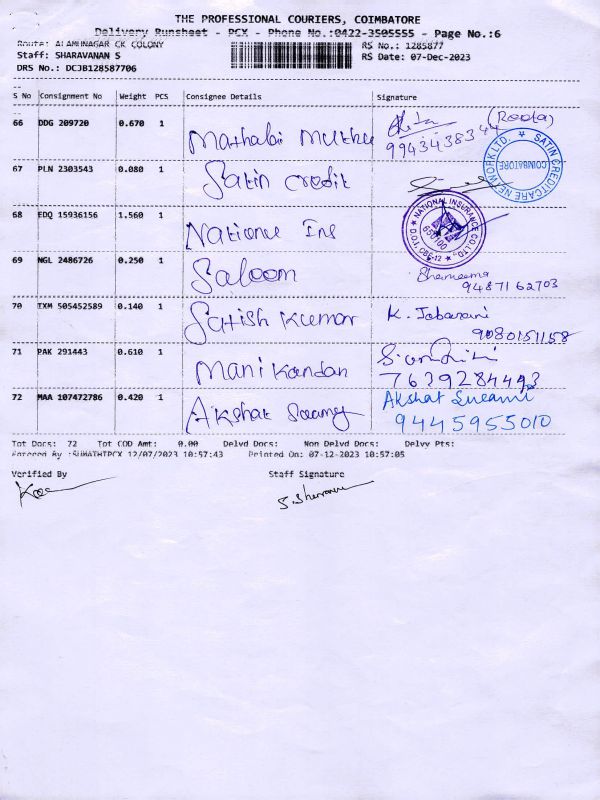 THE PROFESSIONAL COURIERS, COIMBATORE
Delivery Runsheet - PCX - Phone No.:0422-3505555 - Page No.:6
Route: ALAMUNAGAR CK COLONY
RS No.: 1285877
Staff: SHARAVANAN S
RS Date: 07-Dec-2023
DRS No.: DCJB128587706
S No Consignment No Weight PCS Consignee Details Signature
66 DDG 209720 0.670 1 Mathalai Muthu (Reeta)
9943438344
67 PLN 2303543 0.080 1 Satin Credit
SATIN CREDITCARE NETWORK LTD. COIMBATORE
68 EDQ 15936156 1.560 1 Nationu Ins
NATIONAL INSURANCE CO.LTD. D.O.I, CBE-12
69 NGL 2486726 0.250 1 Saloom Shameema
9487162703
70 TXM 505452589 0.140 1 Satish Kumar K. Jabarani
9080151158
71 PAK 291443 0.610 1 Mani Kandan
7639284493
72 MAA 107472786 0.420 1 Akshat Swamy Akshat Swami
9445955010
Tot Docs: 72 Tot COD Amt: 0.00 Delvd Docs: Non Delvd Docs: Delvy Pts:
Entered By :SUMATHIPCX 12/07/2023 10:57:43 Printed On: 07-12-2023 10:57:05
Verified By Staff Signature